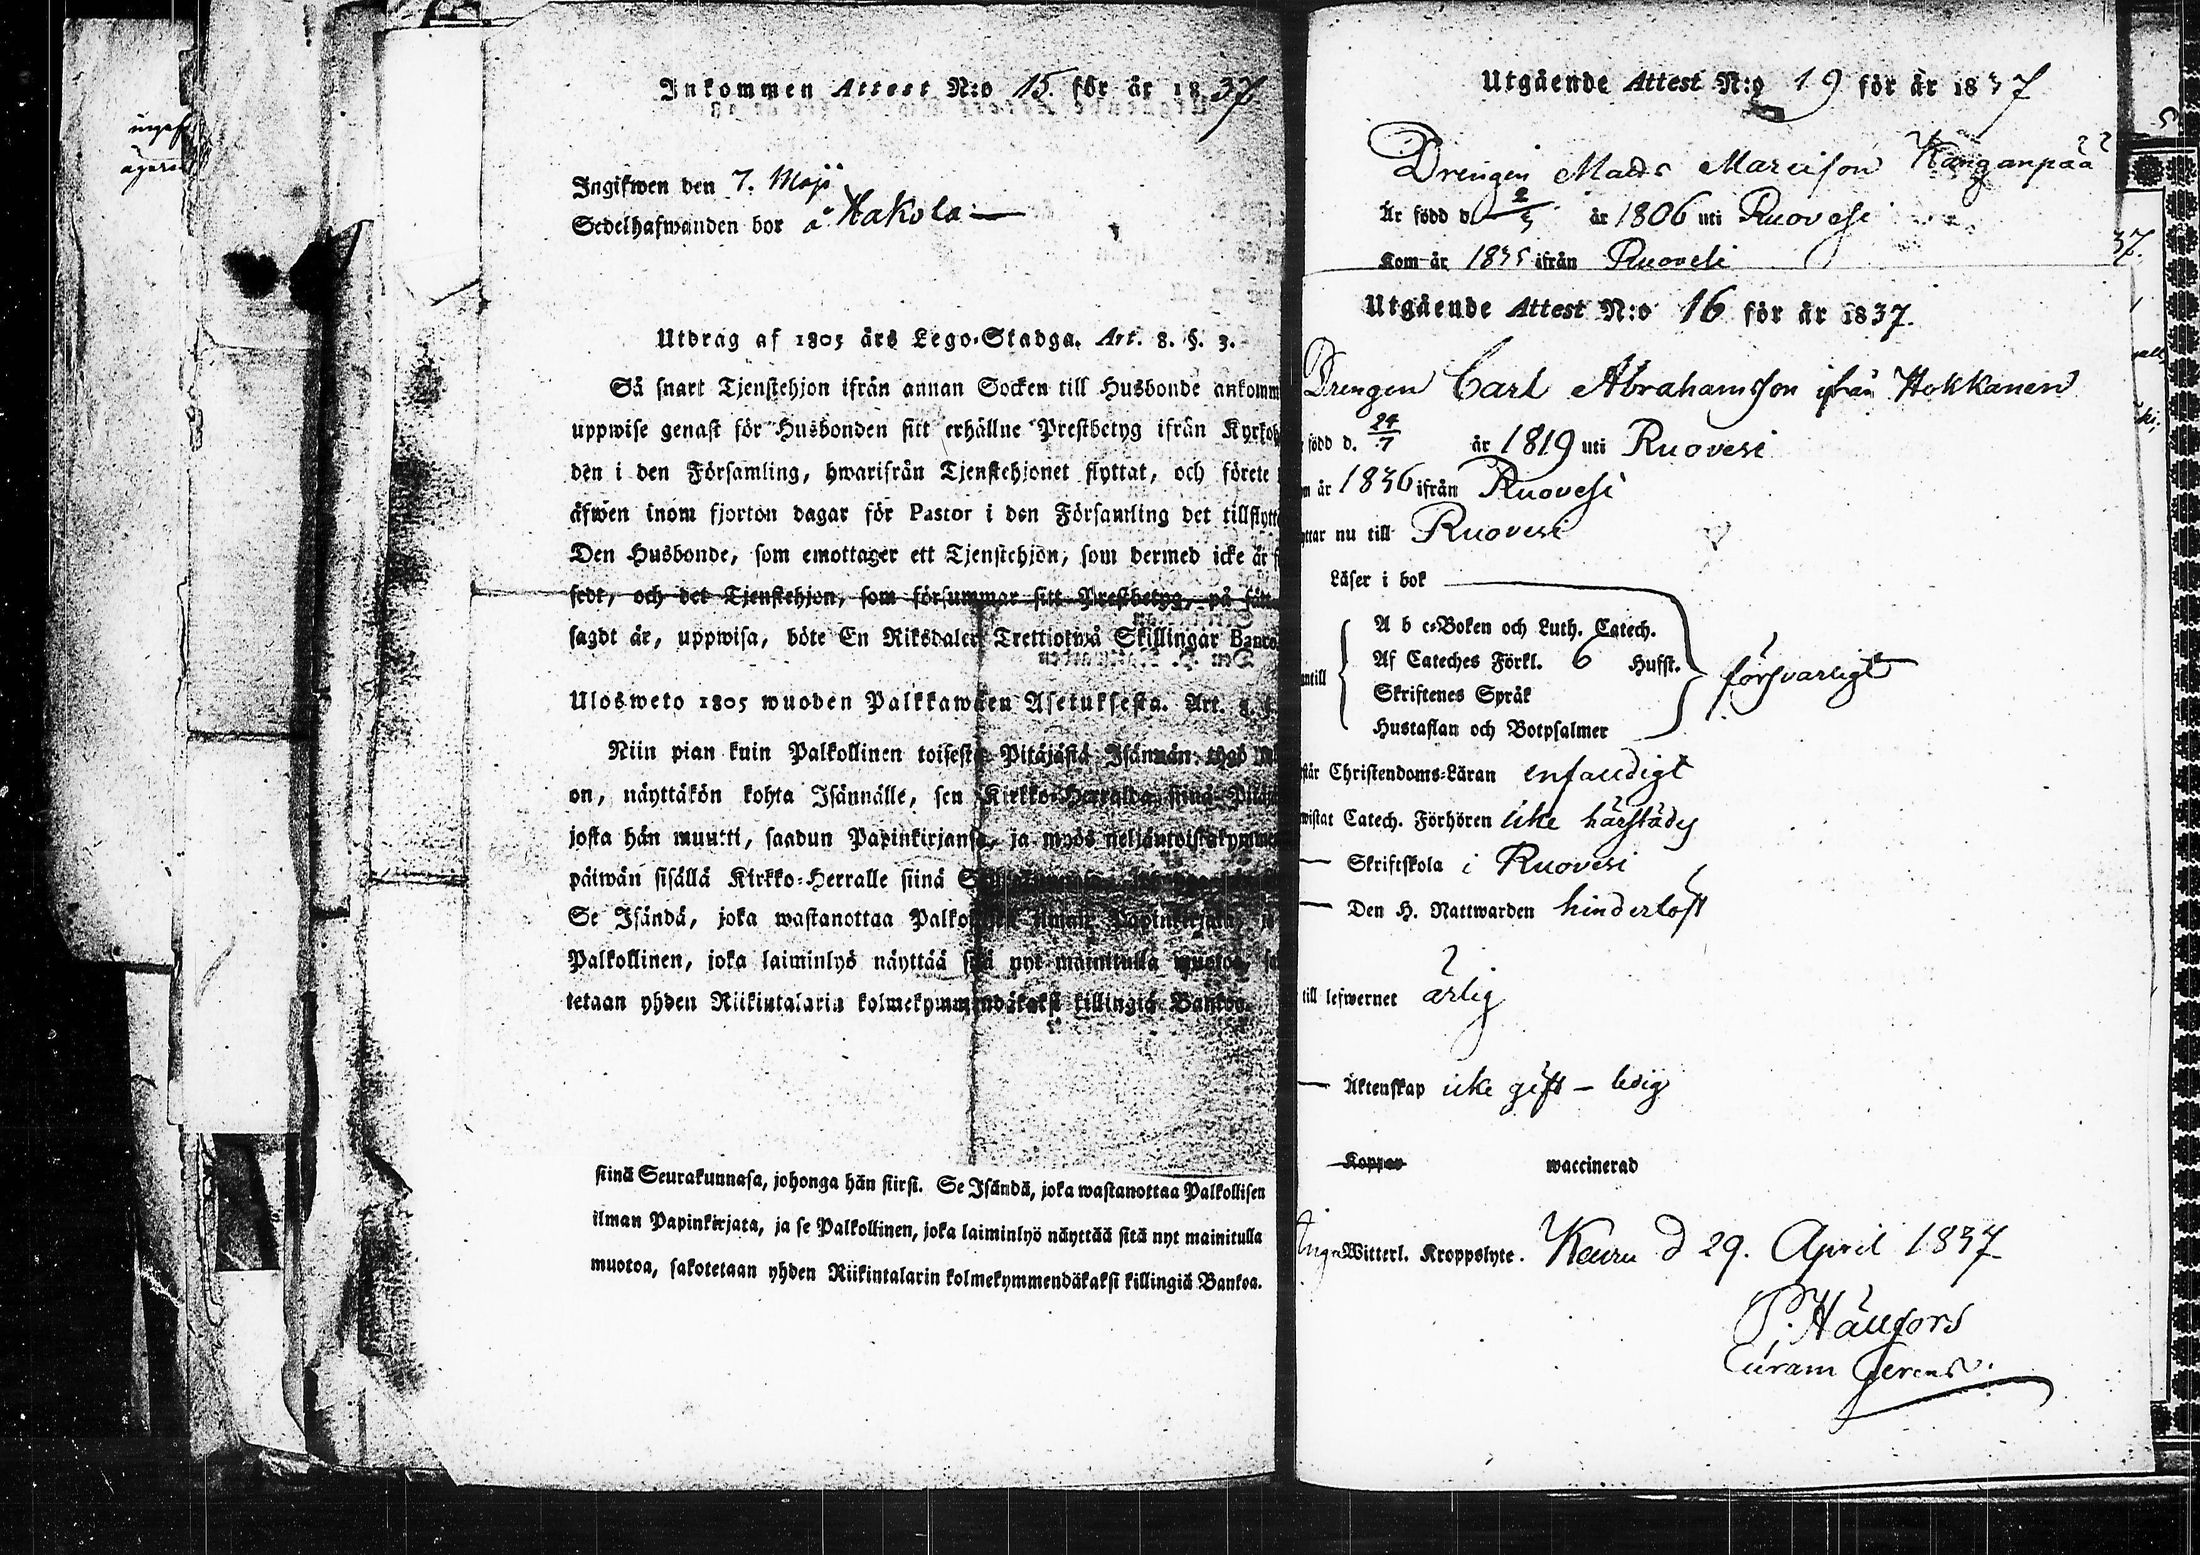 Inkommen Attest N:o 15. för år 1837
Ingifwen den 7. Maji
Sedelhafwanden bor å Hakola
Utdrag af 1805 års Lego-Stadga. Art. 8. §. 3.
Så snart Tjenstehjon ifrån annan Socken till Husbonde ankomm
uppwise genast för Husbonden sitt erhållne Prestbetyg ifrån Kyrko
den i den Församling, hwarifrån Tjenstehjonet flyttat, och förete
äfwen inom fjorton dagar för Pastor i den Församling det tillflytt
Den Husbonde, som emottager ett Tjenstehjon, som dermed icke är
sedt, och det Tjenstehjon, som försummar sitt Prestbetyg, på sätt
sagdt är, uppwisa, böte En Riksdaler Trettiotwå Skillingar Banco
Ulosweto 1805 wuoden Palkkawäen Asetuksesta. Art.
Niin pian kuin Palkollinen toisesta Pitäjästä Isännän tygö
on, näyttäkön kohta Isännälle, sen Kirkko-Herralda siinä
josta hän muutti, saadun Papinkirjansa, ja myös neljäntoistakymmen
päiwän sisällä Kirkko-Herralle siinä
Se Isändä, joka wastanottaa Palkollisen ilman Papinkirjata,
Palkollinen, joka laiminlyö näyttää sitä nyt mainitulla muotoa,
tetaan yhden Riikintalarin kolmekymmendäkaksi killingiä Bankoa.
siinä Seurakunnasa, johonga hän siirsi. Se Isändä, joka wastanottaa Palkollisen
ilman Papinkirjata, ja se Palkollinen, joka laiminlyö näyttää sitä nyt mainitulla
muotoa, sakotetaan yhden Riikintalarin kolmekymmendäkaksi killingiä Bankoa.
Utgående Attest N:o 19 för år 1837
Drengen Matts Marcisson Kånganpää
Är född d. 2/5 år 1806 uti Ruovesi
Kom år 1835 ifrån Ruovesi
Utgående Attest N:o 16 för år 1837.
Drengen Carl Abrahamsson ifrån Hokkanen
född d. 24/7 år 1819 uti Ruovesi
m år 1836 ifrån Ruovesi
yttar nu till Ruovesi
Läser i bok
A b c-Boken och Luth. Catech.
Af Cateches Förkl. 6 Hufst.
antill
försvarligt
Skriftenes Språk
Hustaflan och Botpsalmer
står Christendoms-Läran enfaldigt
wistat Catech. Förhören icke härstädes
— Skriftskola i Ruovesi
— Den H. Nattwarden hinderlöst
till lefwernet ärlig
— Äktenskap icke gift – ledig
Koppor waccinerad
Inga Witterl. Kroppslyte. Keuru d 29. April 1837
P. Hällfors
Curam Gerens.